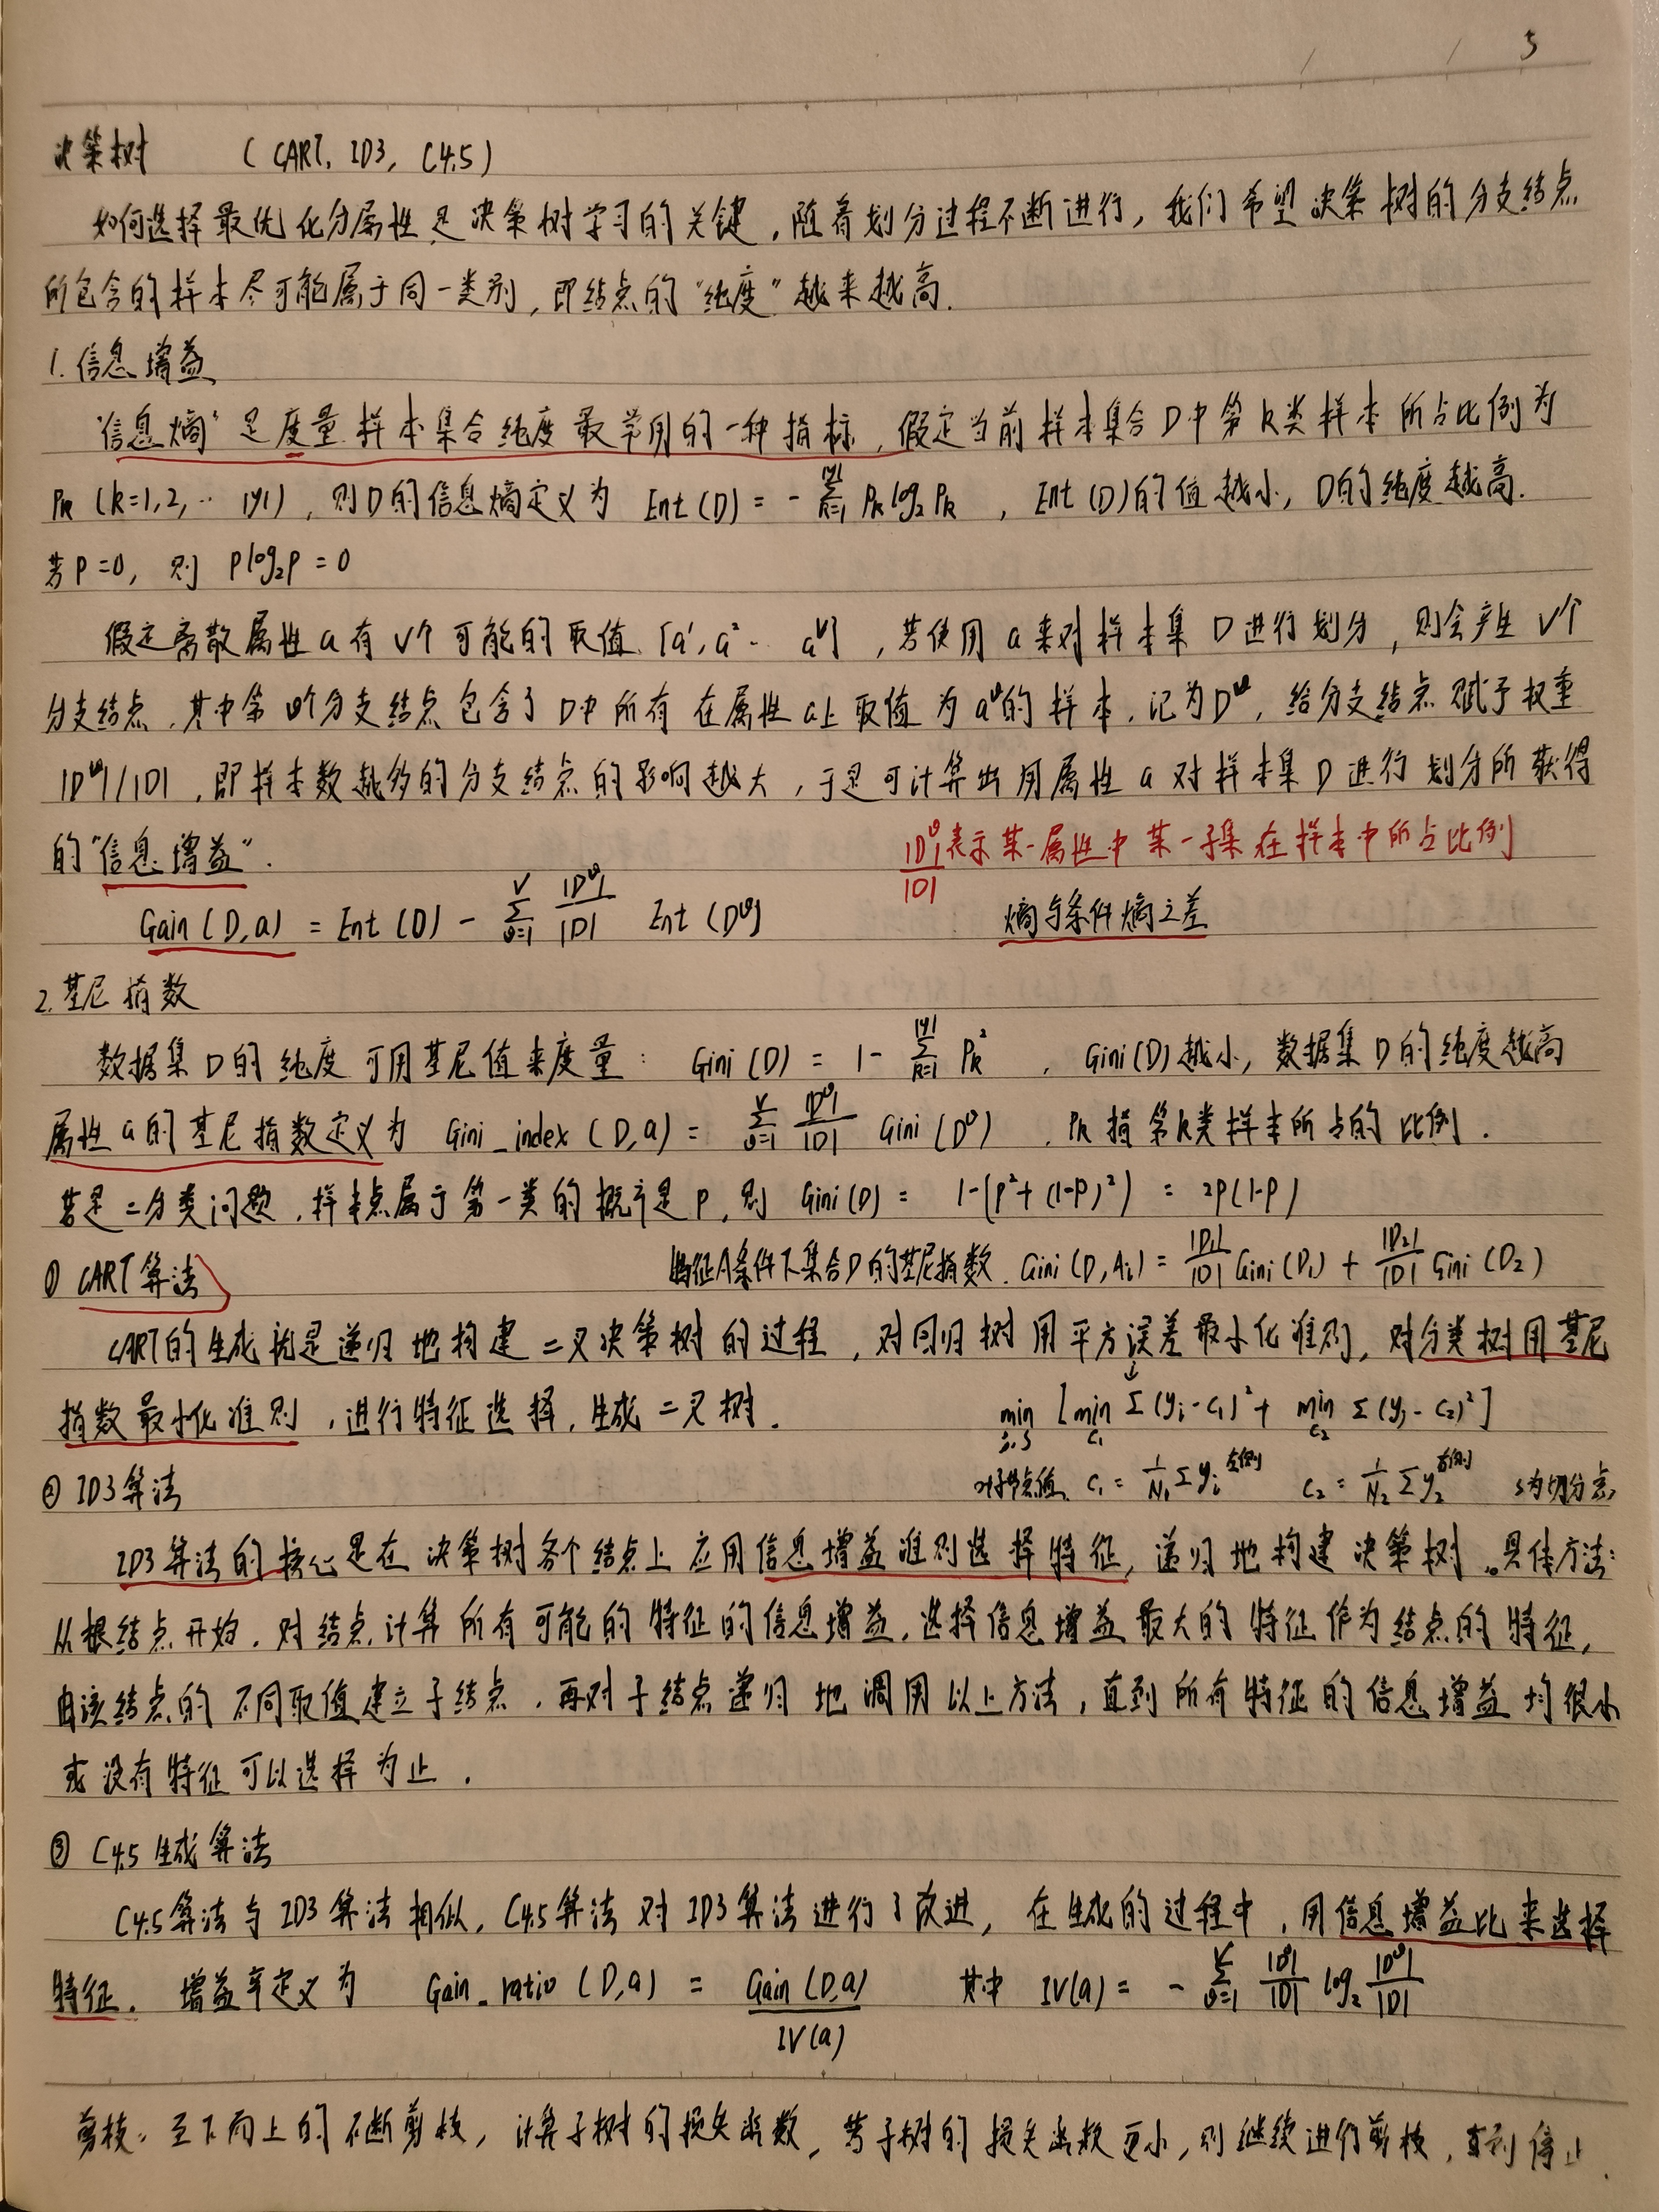 5
决策树 (CART, ID3, C4.5)
如何选择最优化分属性是决策树学习的关键,随着划分过程不断进行,我们希望决策树的分支结点
所包含的样本尽可能属于同一类别,即结点的“纯度”越来越高.
1. 信息增益
“信息熵”是度量样本集合纯度最常用的一种指标,假定当前样本集合D中第k类样本所占比例为
Pk (k=1,2,… |y|),则D的信息熵定义为 Ent(D) = - ∑_{k=1}^{|y|} Pk log₂ Pk , Ent(D)的值越小,D的纯度越高.
若P=0, 则 Plog₂P = 0
假定离散属性a有V个可能的取值{a¹,a²… a^V},若使用a来对样本集D进行划分,则会产生V个
分支结点,其中第v个分支结点包含了D中所有在属性a上取值为a^v的样本,记为D^v,给分支结点赋予权重
|D^v|/|D|,即样本数越多的分支结点的影响越大,于是可计算出用属性a对样本集D进行划分所获得
的“信息增益”.
|D^v|/|D| 表示某一属性中某一子集在样本中所占比例
Gain(D,a) = Ent(D) - ∑_{v=1}^{V} |D^v|/|D| Ent(D^v)
熵与条件熵之差
2. 基尼指数
数据集D的纯度可用基尼值来度量: Gini(D) = 1 - ∑_{k=1}^{|y|} Pk² , Gini(D)越小,数据集D的纯度越高
属性a的基尼指数定义为 Gini_index(D,a) = ∑_{v=1}^{V} |D^v|/|D| Gini(D^v) , Pk指第k类样本所占的比例.
若是二分类问题,样本点属于第一类的概率是P,则 Gini(D) = 1-(P²+(1-P)²) = 2P(1-P)
特征A条件下集合D的基尼指数. Gini(D,Ai) = |D₁|/|D| Gini(D₁) + |D₂|/|D| Gini(D₂)
① CART算法
CART的生成就是递归地构建二叉决策树的过程,对回归树用平方误差最小化准则,对分类树用基尼
指数最小化准则,进行特征选择,生成二叉树.
min_{j,s} [min_{c₁} ∑(yi-c₁)² + min_{c₂} ∑(yj-c₂)²]
叶子节点值 c₁ = 1/N₁ ∑yi 左侧 c₂ = 1/N₂ ∑y₂ 右侧 s为切分点
② ID3算法
ID3算法的核心是在决策树各个结点上应用信息增益准则选择特征,递归地构建决策树。具体方法:
从根结点开始,对结点计算所有可能的特征的信息增益,选择信息增益最大的特征作为结点的特征,
由该结点的不同取值建立子结点,再对子结点递归地调用以上方法,直到所有特征的信息增益均很小
或没有特征可以选择为止.
③ C4.5生成算法
C4.5算法与ID3算法相似,C4.5算法对ID3算法进行了改进,在生成的过程中,用信息增益比来选择
特征. 增益率定义为 Gain_ratio(D,a) = Gain(D,a)/IV(a) 其中 IV(a) = - ∑_{v=1}^{V} |D^v|/|D| log₂ |D^v|/|D|
剪枝: 至下而上的不断剪枝,计算子树的损失函数,若子树的损失函数更小,则继续进行剪枝,直到停止.